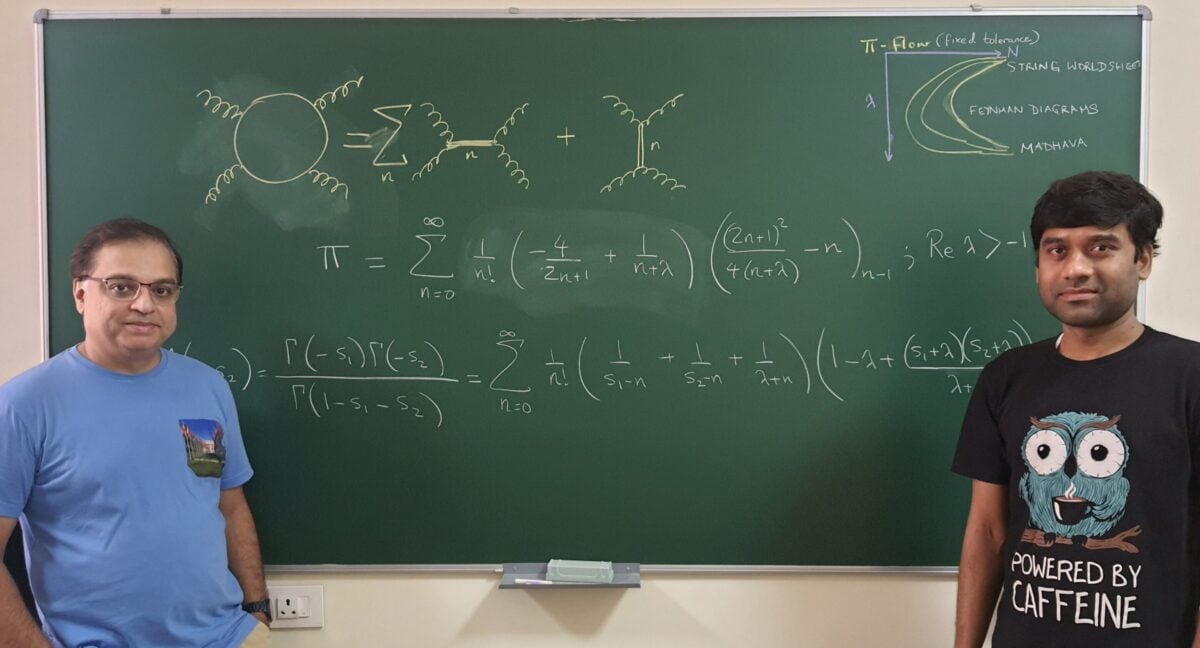 π-flow (fixed tolerance)
N
STRING WORLDSHEE
λ
FEYNMAN DIAGRAMS
MADHAVA
= Σ_n n + n
π = \sum_{n=0}^{∞} \frac{1}{n!} ( -\frac{4}{2n+1} + \frac{1}{n+λ} ) ( \frac{(2n+1)^2}{4(n+λ)} - n )_{n-1} ; Re λ > -1
s_2) = \frac{Γ(-s_1)Γ(-s_2)}{Γ(1-s_1-s_2)} = \sum_{n=0}^{∞} \frac{1}{n!} ( \frac{1}{s_1-n} + \frac{1}{s_2-n} + \frac{1}{λ+n} ) ( 1-λ+ \frac{(s_1+λ)(s_2+λ)}{λ+}
POWERED BY
CAFFEINE